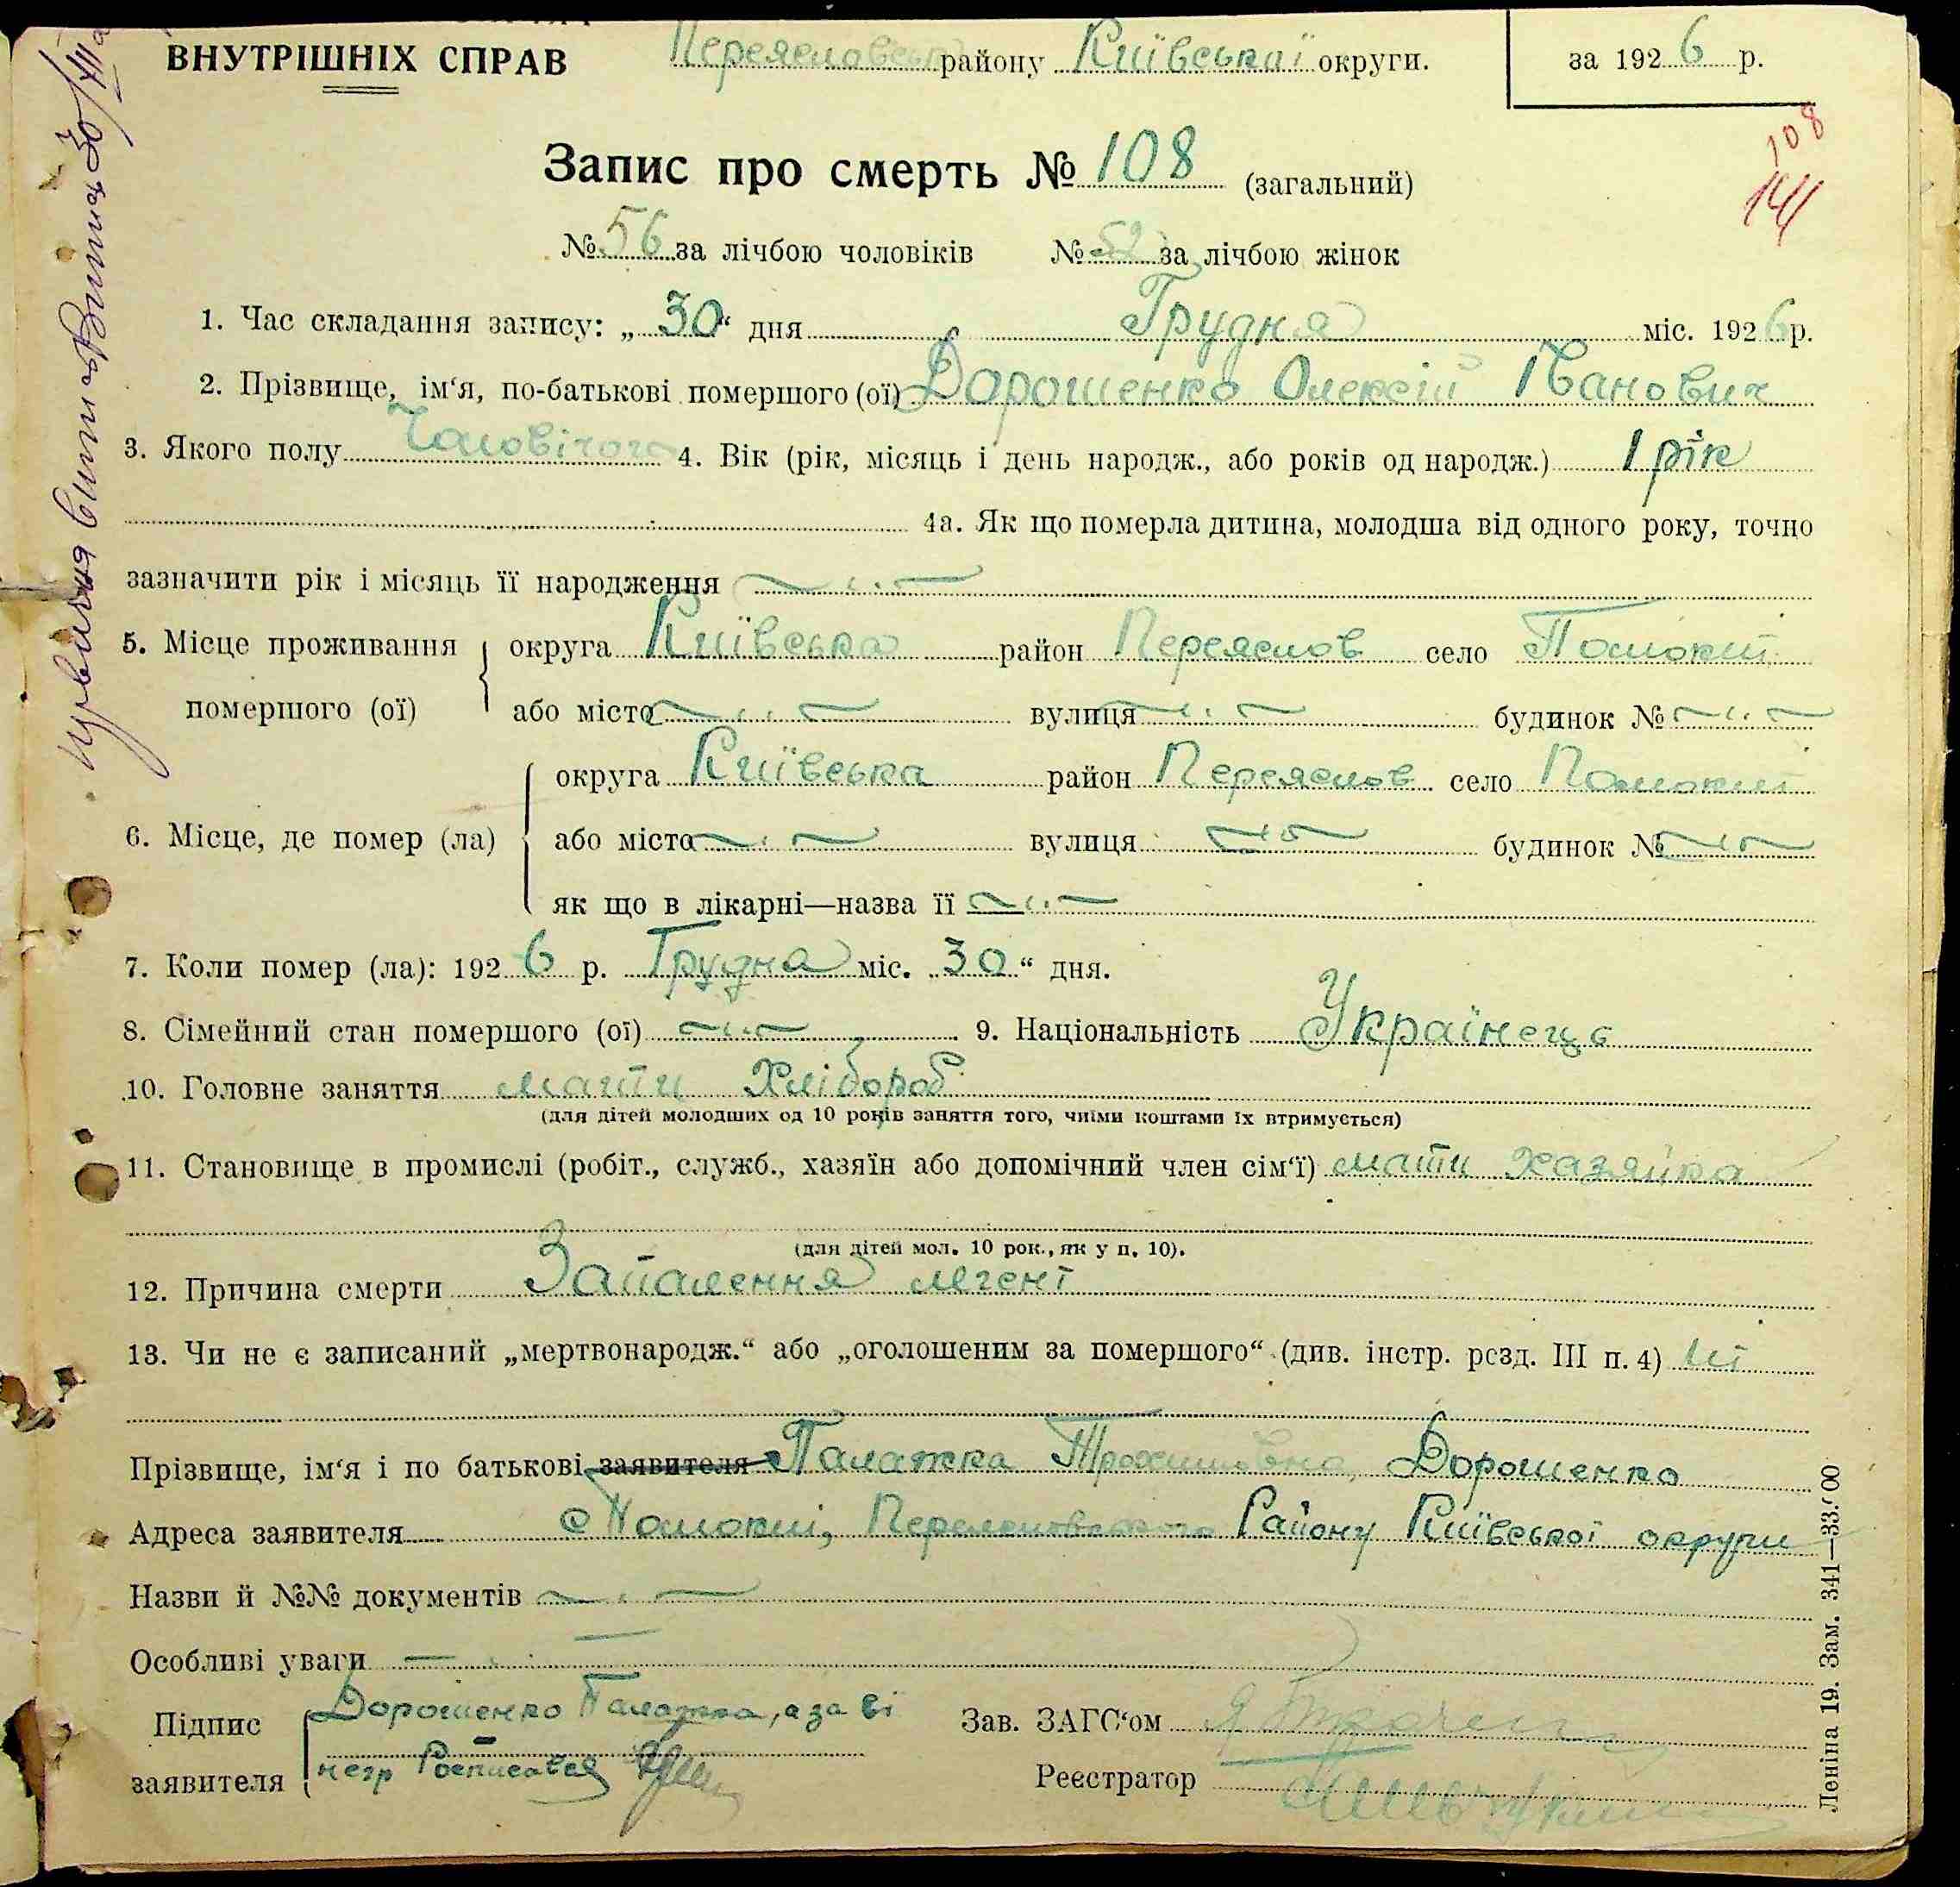 ВНУТРІШНІХ СПРАВ Переяславськ району Київської округи. за 1926 р.
108
141
Запис про смерть № 108 (загальний)
№ 56 за лічбою чоловіків № 52 за лічбою жінок
1. Час складання запису: „30“ дня Грудня міс. 1926 р.
2. Прізвище, ім‘я, по-батькові помершого (ої) Дорошенко Олексій Іванович
3. Якого полу Чоловічого 4. Вік (рік, місяць і день народж., або років од народж.) 1 рік
4а. Як що померла дитина, молодша від одного року, точно
зазначити рік і місяць її народження
5. Місце проживання округа Київська район Переяслов село Помокли
помершого (ої) або місто вулиця будинок №
округа Київська район Переяслов село Помокли
6. Місце, де помер (ла) або місто вулиця будинок №
як що в лікарні—назва її
7. Коли помер (ла): 1926 р. Грудня міс. „30“ дня.
8. Сімейний стан помершого (ої) 9. Національність Українець
10. Головне заняття мати Хлібороб
(для дітей молодших од 10 років заняття того, чиїми коштами їх втримується)
11. Становище в промислі (робіт., служб., хазяїн або допомічний член сім‘ї) мати хазяйка
(для дітей мол. 10 рок., як у п. 10).
12. Причина смерти Запалення легені
13. Чи не є записаний „мертвонародж.“ або „оголошеним за помершого“ (див. інстр. розд. III п. 4) ні
Прізвище, ім‘я і по батькові заявителя Палажка Трохимовна, Дорошенко
Адреса заявителя с Помокли, Переясловського Району Київської округи
Назви й №№ документів
Особливі уваги
Підпис Дорошенко Палажка, а за її Зав. ЗАГС‘ом
заявителя негр Росписався Реєстратор
Леніна 19. Зам. 341—33.00